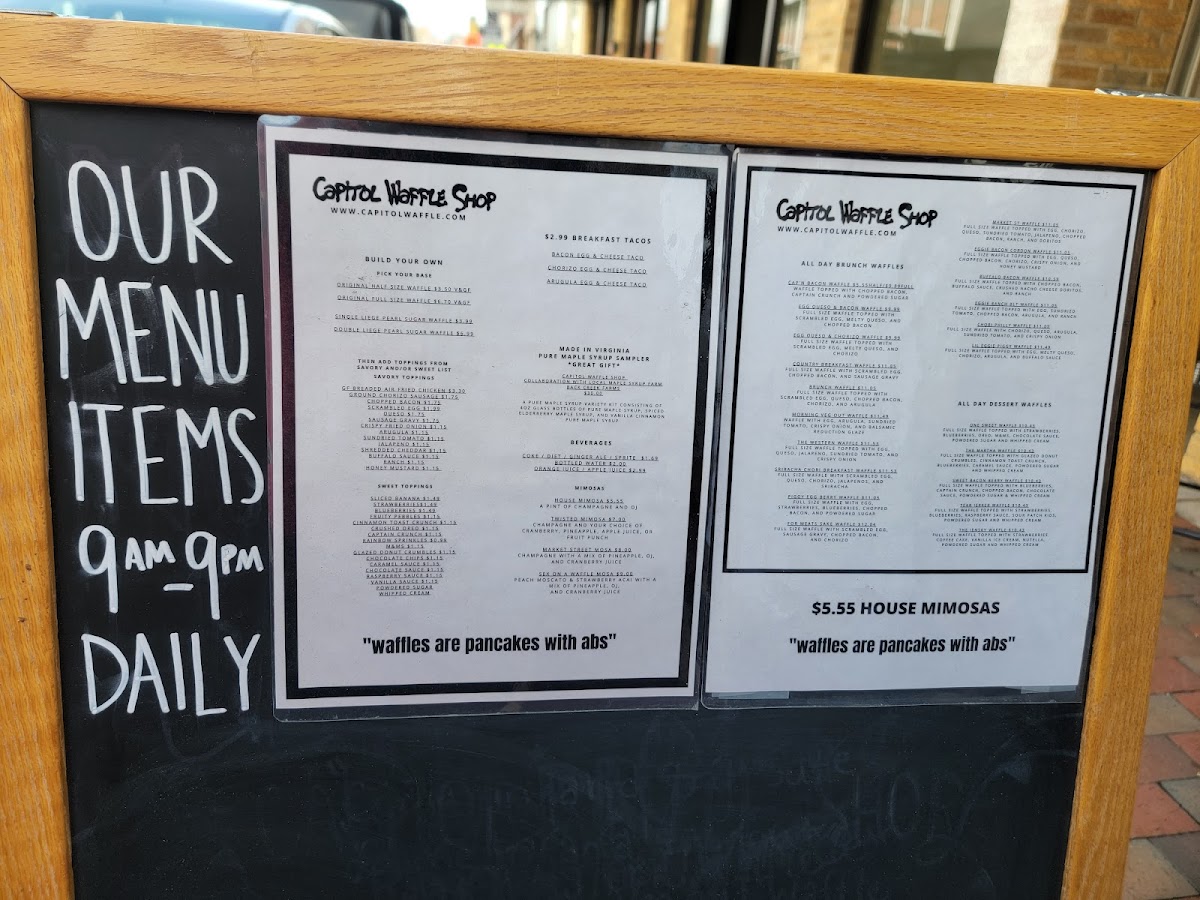 OUR
MENU
ITEMS
9AM-9PM
DAILY
CAPITOL WAFFLE SHOP
WWW.CAPITOLWAFFLE.COM
BUILD YOUR OWN
PICK YOUR BASE
ORIGINAL HALF SIZE WAFFLE $3.50 V&GF
ORIGINAL FULL SIZE WAFFLE $6.70 V&GF
SINGLE LIEGE PEARL SUGAR WAFFLE $3.99
DOUBLE LIEGE PEARL SUGAR WAFFLE $5.99
THEN ADD TOPPINGS FROM
SAVORY AND/OR SWEET LIST
SAVORY TOPPINGS
GF BREADED AIR FRIED CHICKEN $3.50
GROUND CHORIZO SAUSAGE $1.75
CHOPPED BACON $1.75
SCRAMBLED EGG $1.99
QUESO $1.75
SAUSAGE GRAVY $1.75
CRISPY FRIED ONION $1.15
ARUGULA $1.15
SUNDRIED TOMATO $1.15
JALAPENO $1.15
SHREDDED CHEDDAR $1.15
BUFFALO SAUCE $1.15
RANCH $1.15
HONEY MUSTARD $1.15
SWEET TOPPINGS
SLICED BANANA $1.49
STRAWBERRIES $1.49
BLUEBERRIES $1.49
FRUITY PEBBLES $1.15
CINNAMON TOAST CRUNCH $1.15
CRUSHED OREO $1.15
CAPTAIN CRUNCH $1.15
RAINBOW SPRINKLES $0.86
M&MS $1.15
GLAZED DONUT CRUMBLES $1.15
CHOCOLATE CHIPS $1.15
CARAMEL SAUCE $1.15
CHOCOLATE SAUCE $1.15
RASPBERRY SAUCE $1.15
VANILLA SAUCE $1.15
POWDERED SUGAR
WHIPPED CREAM
$2.99 BREAKFAST TACOS
BACON EGG & CHEESE TACO
CHORIZO EGG & CHEESE TACO
ARUGULA EGG & CHEESE TACO
MADE IN VIRGINIA
PURE MAPLE SYRUP SAMPLER
*GREAT GIFT*
CAPITOL WAFFLE SHOP
COLLABORATION WITH LOCAL MAPLE SYRUP FARM
BACK CREEK FARMS
$30.00
A PURE MAPLE SYRUP VARIETY KIT CONSISTING OF
4OZ GLASS BOTTLES OF PURE MAPLE SYRUP, SPICED
ELDERBERRY MAPLE SYRUP, AND VANILLA CINNAMON
PURE MAPLE SYRUP
BEVERAGES
COKE / DIET / GINGER ALE / SPRITE $1.69
BOTTLED WATER $2.00
ORANGE JUICE / APPLE JUICE $2.99
MIMOSAS
HOUSE MIMOSA $5.55
A PINT OF CHAMPAGNE AND OJ
TWISTED MIMOSA $7.00
CHAMPAGNE AND YOUR CHOICE OF
CRANBERRY, PINEAPPLE, APPLE JUICE, OR
FRUIT PUNCH
MARKET STREET MOSA $8.00
CHAMPAGNE WITH A MIX OF PINEAPPLE, OJ,
AND CRANBERRY JUICE
SEX ON A WAFFLE MOSA $9.00
PEACH MOSCATO & STRAWBERRY ACAI WITH A
MIX OF PINEAPPLE, OJ,
AND CRANBERRY JUICE
"waffles are pancakes with abs"
CAPITOL WAFFLE SHOP
WWW.CAPITOLWAFFLE.COM
ALL DAY BRUNCH WAFFLES
CAP'N BACON WAFFLE
WAFFLE TOPPED WITH CHOPPED BACON,
CAPTAIN CRUNCH AND POWDERED SUGAR
EGG QUESO & BACON WAFFLE $9.98
FULL SIZE WAFFLE TOPPED WITH
SCRAMBLED EGG, MELTY QUESO, AND
CHOPPED BACON
EGG QUESO & CHORIZO WAFFLE $9.98
FULL SIZE WAFFLE TOPPED WITH
SCRAMBLED EGG, MELTY QUESO, AND
CHORIZO
COUNTRY BREAKFAST WAFFLE $11.05
FULL SIZE WAFFLE WITH SCRAMBLED EGG,
CHOPPED BACON, AND SAUSAGE GRAVY
BRUNCH WAFFLE $11.05
FULL SIZE WAFFLE TOPPED WITH
SCRAMBLED EGG, QUESO, CHOPPED BACON,
CHORIZO, AND ARUGULA
MORNING VEG OUT WAFFLE $11.49
WAFFLE WITH EGG, ARUGULA, SUNDRIED
TOMATO, CRISPY ONION, AND BALSAMIC
REDUCTION GLAZE
THE WESTERN WAFFLE $11.05
FULL SIZE WAFFLE TOPPED WITH EGG,
QUESO, JALAPENO, SUNDRIED TOMATO, AND
CRISPY ONION
SRIRACHA CHORI BREAKFAST WAFFLE
FULL SIZE WAFFLE WITH SCRAMBLED EGG,
QUESO, CHORIZO, JALAPENOS, AND
SRIRACHA
PIGGY EGG BERRY WAFFLE $11.05
FULL SIZE WAFFLE WITH EGG,
STRAWBERRIES, BLUEBERRIES, CHOPPED
BACON, AND POWDERED SUGAR
FOR MEATS SAKE WAFFLE
FULL SIZE WAFFLE WITH SCRAMBLED EGG,
SAUSAGE GRAVY, CHOPPED BACON,
AND CHORIZO
MARKET ST WAFFLE $11.05
FULL SIZE WAFFLE TOPPED WITH EGG, CHORIZO,
QUESO, SUNDRIED TOMATO, JALAPENO, CHOPPED
BACON, RANCH, AND DORITOS
EGGIE BACON CORDON WAFFLE $11.05
FULL SIZE WAFFLE TOPPED WITH EGG, QUESO,
CHOPPED BACON, CHORIZO, CRISPY ONION, AND
HONEY MUSTARD
BUFFALO BACON WAFFLE
FULL SIZE WAFFLE TOPPED WITH CHOPPED BACON,
BUFFALO SAUCE, CRUSHED NACHO CHEESE DORITOS,
AND RANCH
EGGIE RANCH BLT WAFFLE $11.05
FULL SIZE WAFFLE TOPPED WITH EGG, SUNDRIED
TOMATO, CHOPPED BACON, ARUGULA, AND RANCH
CHORI PHILLY WAFFLE $11.05
FULL SIZE WAFFLE WITH CHORIZO, QUESO, ARUGULA,
SUNDRIED TOMATO, AND CRISPY ONION
LIL EGGIE PIGGY WAFFLE $11.49
FULL SIZE WAFFLE TOPPED WITH EGG, MELTY QUESO,
CHORIZO, ARUGULA, AND BUFFALO SAUCE
ALL DAY DESSERT WAFFLES
UNO SWEET WAFFLE $10.45
FULL SIZE WAFFLE TOPPED WITH STRAWBERRIES,
BLUEBERRIES, OREO, M&MS, CHOCOLATE SAUCE,
POWDERED SUGAR AND WHIPPED CREAM
THE MARTHA WAFFLE $10.45
FULL SIZE WAFFLE TOPPED WITH GLAZED DONUT
CRUMBLES, CINNAMON TOAST CRUNCH,
BLUEBERRIES, CARAMEL SAUCE, POWDERED SUGAR
AND WHIPPED CREAM
SWEET BACON BERRY WAFFLE $10.45
FULL SIZE WAFFLE TOPPED WITH BLUEBERRIES,
CAPTAIN CRUNCH, CHOPPED BACON, CHOCOLATE
SAUCE, POWDERED SUGAR & WHIPPED CREAM
WAFFLE $10.45
FULL SIZE WAFFLE TOPPED WITH STRAWBERRIES,
BLUEBERRIES, RASPBERRY SAUCE, SOUR PATCH KIDS,
POWDERED SUGAR AND WHIPPED CREAM
THE JERSEY WAFFLE $10.45
FULL SIZE WAFFLE TOPPED WITH STRAWBERRIES
COFFEE CAKE, VANILLA ICE CREAM, NUTELLA,
POWDERED SUGAR AND WHIPPED CREAM
$5.55 HOUSE MIMOSAS
"waffles are pancakes with abs"